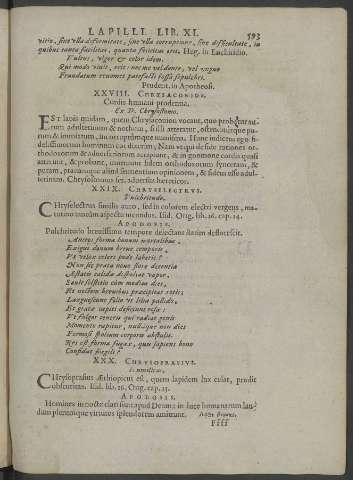 LAPILLI LIB. XI. 593
vitio, sine ulla deformitate, sine ulla corruptione, sine difficultate, in
quibus tanta facilitas, quanta felicitas erit. Hug. in Enchiridio.
Vultus, vigor & color idem.
Qui modo vivit, erit: nec me vel dente, vel ungue
Fraudatum revomet patefacti fossa sepulchri.
Prudent. in Apotheosi.
XXVIII. CHRYSACONIDE.
Cordis humani prodenna.
Ex D. Chrysostomo.
EST lapis quidam, quem Chrysaconion vocant, quo probant au-
rum adulterinum & nothum, si illi atterant, ostendítque pu-
rum & immotatum, an non optimúmque manserit. Hunc
delissimorum hominum cor dicerim; Nam verba
orthodoxorum & adversariorum accipiunt, & in cordis quasi
attritu, & probant, examinant fidem orthodoxorum synceram, &
puram, pravamque aliud sentientium opinionem, & fidei esse adul-
terinam. Chrysostomus ser. adversus hæreticos.
XXIX. CHRYSELECTRUS.
Pulchritudo.
CHryselectrus similis auro, sed in colorem electri vergens, ma-
tutino tantùm aspectu iucundus. Isid. Orig. lib. 16. cap. 14.
APODOSIS.
Pulchritudo brevissimo tempore delectans statim deflorescit.
Anceps forma bonum mortalibus,
Exigui donum breve temporis,
Vt velox celeri pede laberis!
Non sic prata novo flore decentia
Æstatis calidæ dispoliat vapor,
Sævit solstitio cùm medius dies,
Et noctem brevibus præcipitat rotis;
Languescunt folio vt lilia pallido,
Et gratæ capiti deficiunt rosæ:
Vt fulgor teneris qui radiat genis
Momento rapitur, nullaque non dies
Formosi spolium corporis abstulit.
Res est forma fugax, quis sapiens bono
Confidat fragili?
XXX. CHRYSOPRASIUS.
Humilitas.
CHrysoprasius Æthiopicus est, quem lapidem lux celat, prodit
obscuritas. Isid. lib. 16. Orig. cap. 15.
APODOSIS.
Homines in nocte clari sunt apud Deum: in luce humanarum lau-
dum plerunque virtutis splendorem amittunt.
Ffff